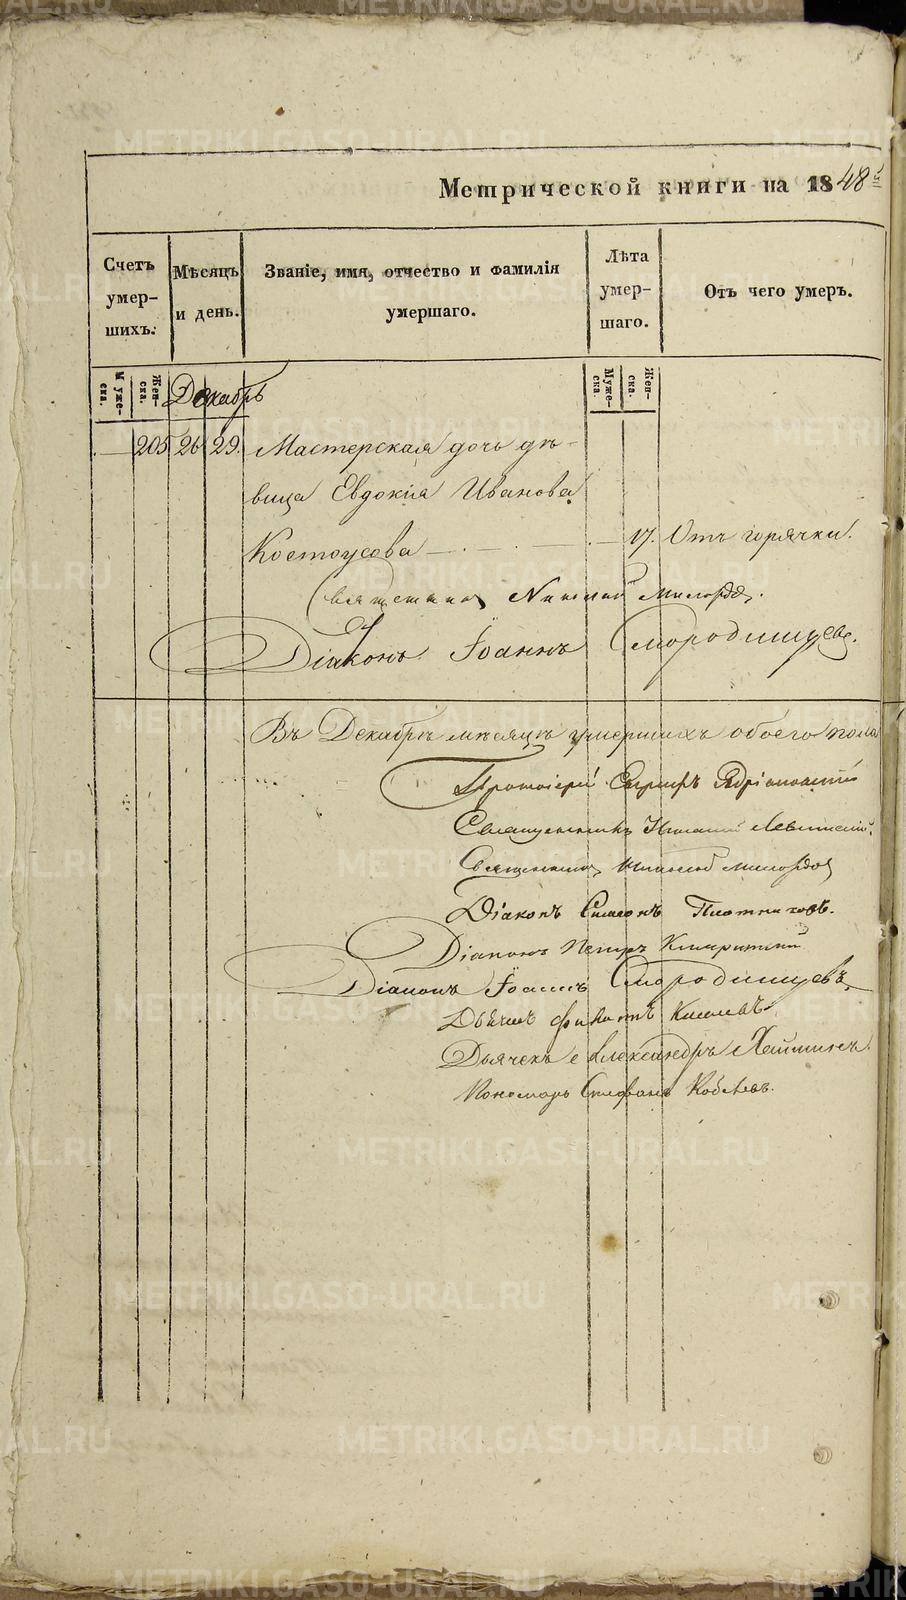 Метрической книги на 1848й
Счетъ умер-шихъ.
Мѣсяцъ и день.
Званіе, имя, отчество и фамилія умершаго.
Лѣта умер-шаго.
Отъ чего умеръ.
Муже-ска. Жен-ска.
Декабрь
Муже-ска. Жен-ска.
205 26 29. Мастерская дочь дѣ-
вица Евдокія Иванова
Костоусова 17. Отъ горячки.
Священникъ Николай
Діаконъ Іоаннъ Смородинцевъ.
Въ Декабрѣ мѣсяцѣ умершихъ обоего пола
Протоіерей
Священникъ Левитскій.
Священникъ
Діаконъ Симеонъ Плотниковъ.
Діаконъ Петръ
Діаконъ Іоаннъ Смородинцевъ
Дьячекъ Киселевъ
Дьячекъ Александръ
Пономарь Стефанъ
METRIKI.GASO-URAL.RU